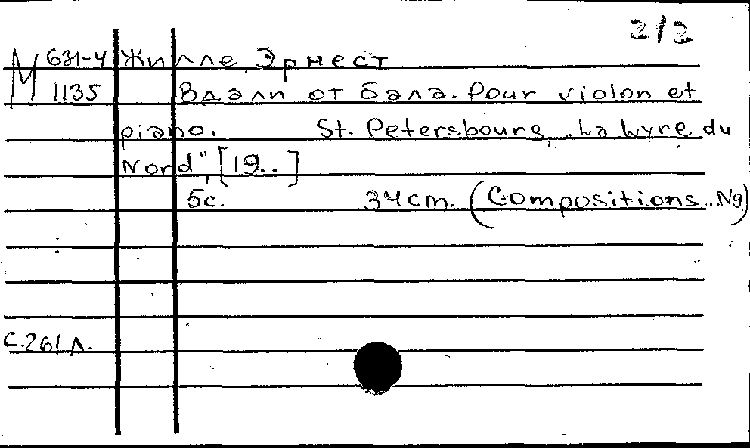 2/2
М 631-4 Жилле, Эрнест
1135 Вдали от бала. Pour violon et
piano. St. Petersbourg, "La Lyre du
Nord", [19..]
5с. 34 cm. (Compositions. N9)
С.261 Л.